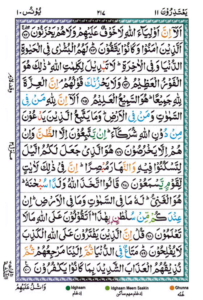 يَعْتَذِرُوْنَ ١١ ٢١٧ يُوْنُس ١٠
اَلَاۤ اِنَّ اَوْلِيَآءَ اللّٰهِ لَا خَوْفٌ عَلَيْهِمْ وَلَا هُمْ يَحْزَنُوْنَ
الَّذِيْنَ اٰمَنُوْا وَكَانُوْا يَتَّقُوْنَ لَهُمُ الْبُشْرٰى فِى الْحَيٰوةِ
الدُّنْيَا وَفِى الْاٰخِرَةِ لَا تَبْدِيْلَ لِكَلِمٰتِ اللّٰهِ ذٰلِكَ هُوَ
الْفَوْزُ الْعَظِيْمُ وَلَا يَحْزُنْكَ قَوْلُهُمْ اِنَّ الْعِزَّةَ
لِلّٰهِ جَمِيْعًا هُوَ السَّمِيْعُ الْعَلِيْمُ اَلَاۤ اِنَّ لِلّٰهِ مَنْ فِى
السَّمٰوٰتِ وَمَنْ فِى الْاَرْضِ وَمَا يَتَّبِعُ الَّذِيْنَ يَدْعُوْنَ
مِنْ دُوْنِ اللّٰهِ شُرَكَآءَ اِنْ يَّتَّبِعُوْنَ اِلَّا الظَّنَّ وَاِنْ
هُمْ اِلَّا يَخْرُصُوْنَ هُوَ الَّذِىْ جَعَلَ لَكُمُ الَّيْلَ
لِتَسْكُنُوْا فِيْهِ وَالنَّهَارَ مُبْصِرًا اِنَّ فِىْ ذٰلِكَ لَاٰيٰتٍ
لِّقَوْمٍ يَّسْمَعُوْنَ قَالُوا اتَّخَذَ اللّٰهُ وَلَدًا سُبْحٰنَهٗ
هُوَ الْغَنِىُّ لَهٗ مَا فِى السَّمٰوٰتِ وَمَا فِى الْاَرْضِ اِنْ
عِنْدَكُمْ مِّنْ سُلْطٰنٍ بِهٰذَا اَتَقُوْلُوْنَ عَلَى اللّٰهِ مَا لَا
تَعْلَمُوْنَ قُلْ اِنَّ الَّذِيْنَ يَفْتَرُوْنَ عَلَى اللّٰهِ الْكَذِبَ
لَا يُفْلِحُوْنَ مَتَاعٌ فِى الدُّنْيَا ثُمَّ اِلَيْنَا مَرْجِعُهُمْ ثُمَّ
نُذِيْقُهُمُ الْعَذَابَ الشَّدِيْدَ بِمَا كَانُوْا يَكْفُرُوْنَ
وَاتْلُ عَلَيْهِمْ
Idghaam Idghaam Meem Saakin Ghunna